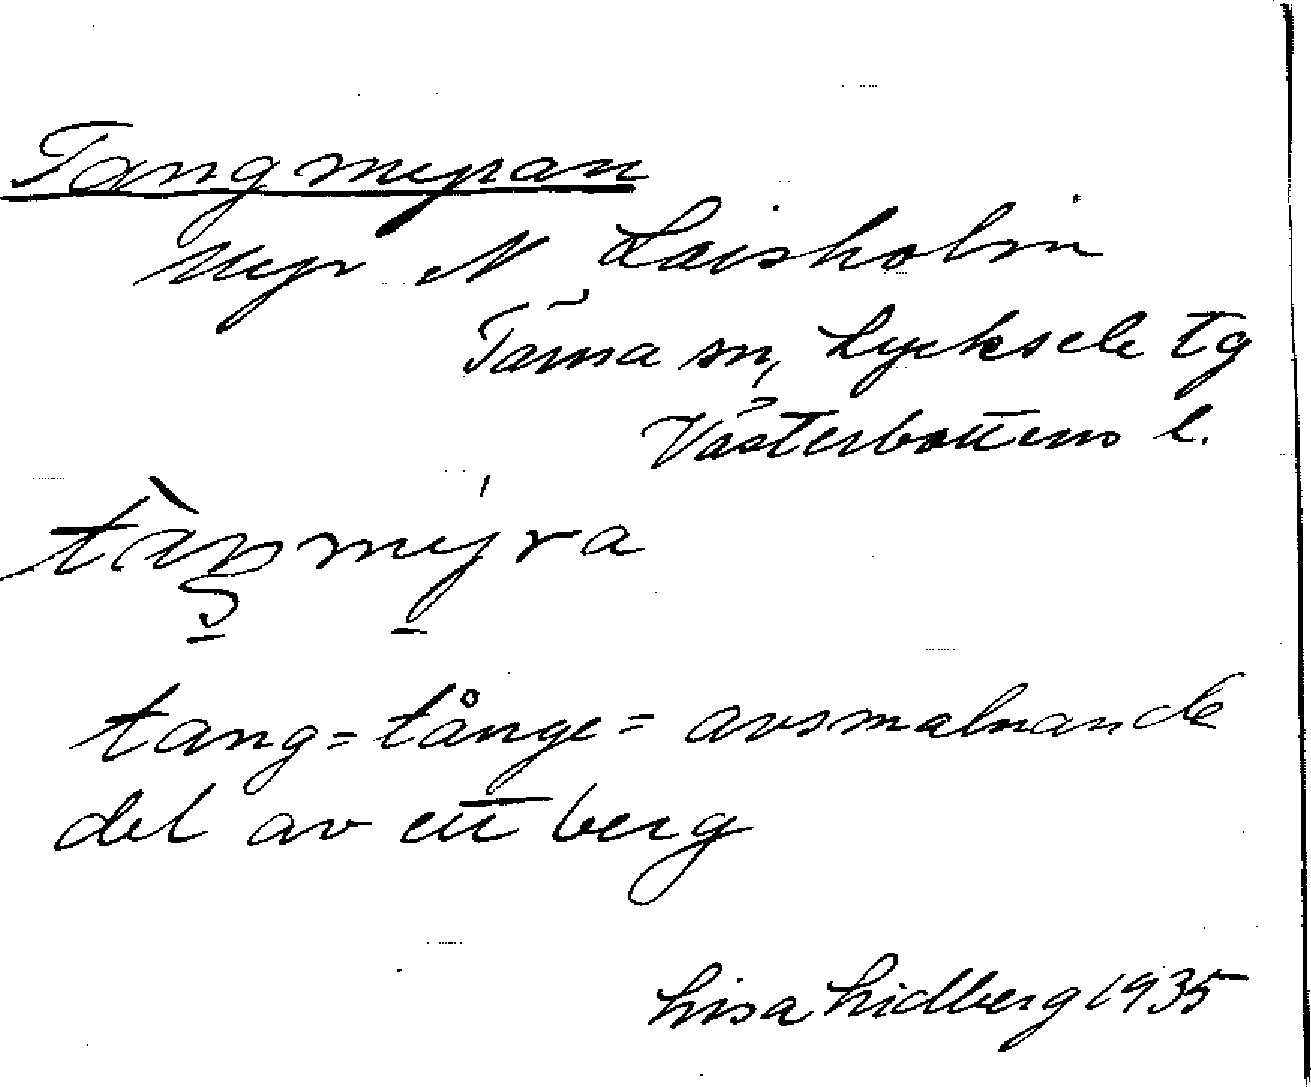 Tangmyran
Myr N Laisholm
Tärna sn, Lycksele tg
Västerbottens l.
tàŋmýra
tang = tånge = avsmalnande
del av ett berg
Lisa Lidberg 1935